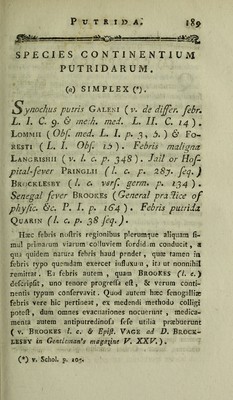 PUTRIDA. 189
SPECIES CONTINENTIUM
PUTRIDARUM.
(o) SIMPLEX (*).
Synochus putris GALENI (v. de differ. febr.
L. I. C. 9. & meth. med. L. II. C. 14).
LOMMII (Obs. med. L. I. p. 3, 5.) & FO-
RESTI (L. I. Obs. 15). Febris maligna
LANGRISHII (v. l. c. p. 348). Jail or Hos-
pital-fever PRINGLII (l. c. p. 287. seq.)
BROCKLESBY (l. c. vers. germ. p. 134).
Senegal fever BROOKES (General practice of
physic. &c. P. I. p. 164). Febris putrida
QUARIN (l. c. p. 38 seq.).
Hæc febris nostris regionibus plerumque aliquam si-
mul primarum viarum colluviem sordidam conducit, a
qua quidem natura febris haud pendet, quæ tamen in
febris typo quemdam exercet influxum, ita ut nonnihil
remittat. Ea febris autem, quam BROOKES (l. c.)
descripsit, uno tenore progressa est, & verum conti-
nentis typum conservavit. Quod autem hæc senegalliæ
febris vere hic pertineat, ex medendi methodo colligi
potest, dum omnes evacuationes nocuerunt, medica-
menta autem antiputredinosa sese utilia præbuerunt
(v. BROOKES l. c. & Epist. VAGE ad D. BROCK-
LESBY in Gentleman's magazine V. XXV.).
(*) v. Schol. p. 107.